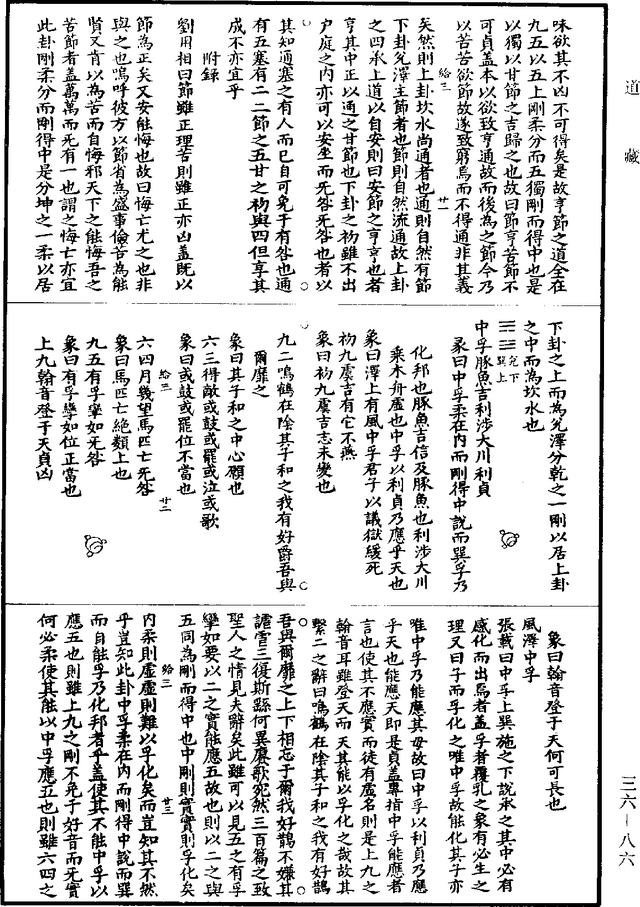 道藏
味欲其不凶不可得矣是故亨節之道全在
九五以五上剛柔分而五獨剛而得中也是
以獨以甘節之吉歸之也故曰節亨苦節不
可貞蓋本以欲致亨通故而後為之節今乃
以苦苦欲節故遂致窮焉而不得通非其義
給三 廿一
矣然則上卦坎水尚通者也通則自然有節
下卦兌澤主節者也節則自然流通故上卦
之四承上道以自安則曰安節之亨亨也者
亨其中正以通之甘節也下卦之初雖不出
戶庭之內亦可以安坐而无咎无咎也者以
其知通塞之有人而已自可免于有咎也通
有五塞有二二節之五甘之初與四但享其
成不亦宜乎
附錄
劉用相曰節雖正理苦則雖正亦凶蓋既以
節為正矣又安能悔也故曰悔亡尤之也非
與之也嗚呼彼方以節省為盛事儉苦為能
賢又肯以為苦而自悔邪天下之能悔吾之
苦節者蓋萬萬而无有一也謂之悔亡亦宜
此卦剛柔分而剛得中是分坤之一柔以居
下卦之上而為兌澤分乾之一剛以居上卦
之中而為坎水也
兌下
巽上
中孚豚魚吉利涉大川利貞
彖曰中孚柔在內而剛得中說而巽孚乃
化邦也豚魚吉信及豚魚也利涉大川
乘木舟虛也中孚以利貞乃應乎天也
象曰澤上有風中孚君子以議獄緩死
初九虞吉有它不燕
象曰初九虞吉志未變也
九二鳴鶴在陰其子和之我有好爵吾與
爾靡之
象曰其子和之中心願也
六三得敵或鼓或罷或泣或歌
象曰或鼓或罷位不當也
給三 廿二
六四月幾望馬匹亡无咎
象曰馬匹亡絕類上也
九五有孚攣如无咎
象曰有孚攣如位正當也
上九翰音登于天貞凶
象曰翰音登于天何可長也
風澤中孚
張載曰中孚上巽施之下說承之其中必有
感化而出焉者蓋孚者覆乳之象有必生之
理又曰子而孚化之唯中孚故能化其子亦
唯中孚乃能應其母故曰中孚以利貞乃應
乎天也能應天即是貞蓋專指中孚能應者
言也使其不應實而徒有虛名則是上九之
翰音耳雖登天而天其能以孚化之哉故其
繫二之辭曰鳴鶴在陰其子和之我有好爵
吾與爾靡之上下相忘于爾我好爵不嫌其
謔雪三復斯繇何異賡歌宛然三百篇之致
聖人之情見夫辭矣此雖可以見五之有孚
攣如要以二之實能應五故也則以二之與
五同為剛而得中也中剛則實實則孚化矣
給三 廿三
內柔則虛虛則難以孚化矣而豈知其不然
乎豈知此卦中孚柔在內而剛得中說而巽
而自能孚乃化邦者乎蓋使其不能中孚以
應五也則雖上九之剛不免于好音而无實
何必柔使其能以中孚應五也則雖六四之
三六－八六